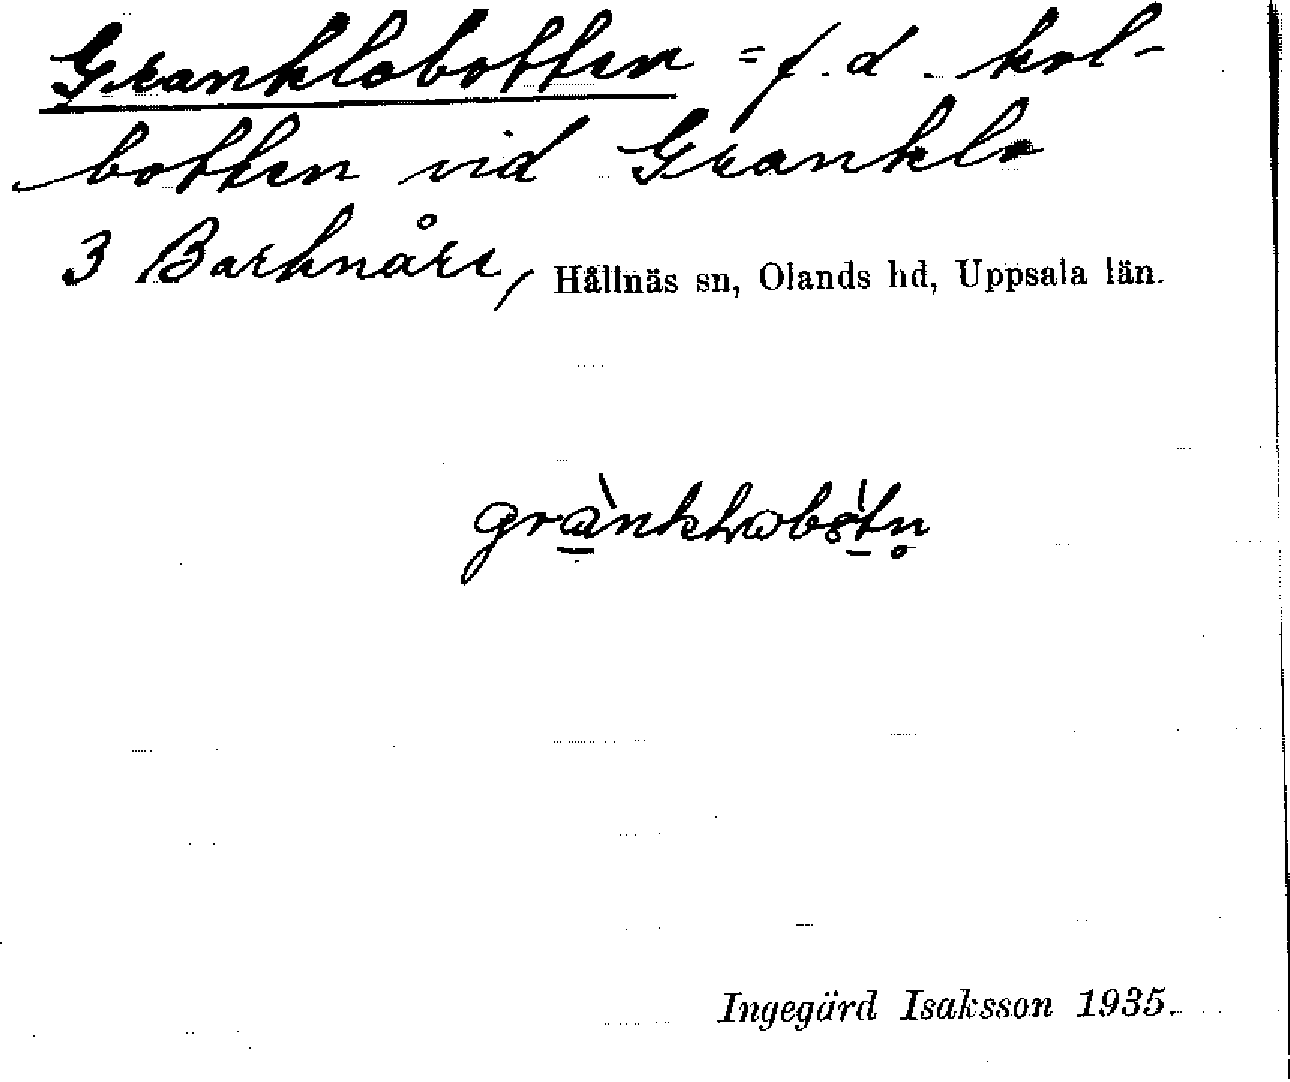 Granklobotten = f.d. kol-
botten vid Granklo
3 Barknåre, Hållnäs sn, Olands hd, Uppsala län.
Ingegärd Isaksson 1935.